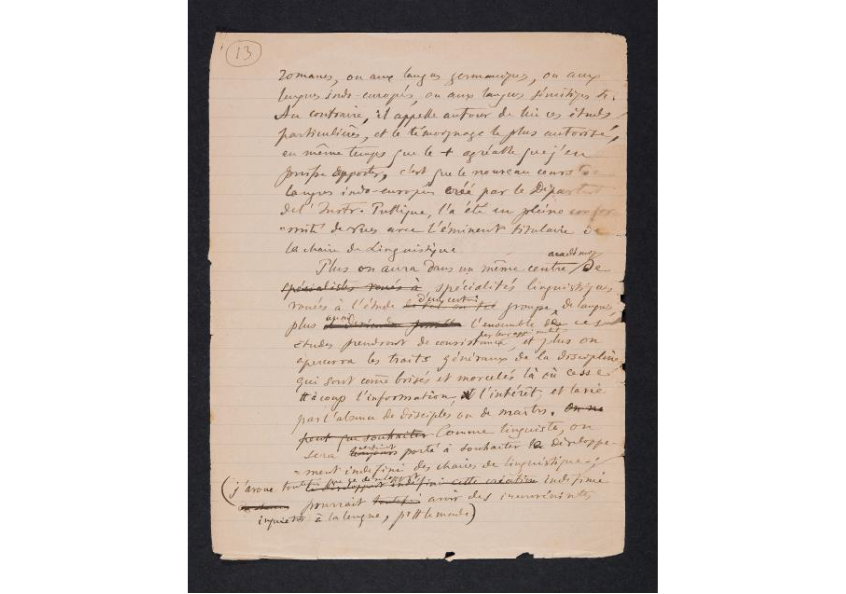 13
romanes, ou aux langues germaniques, ou aux
langues indo-europ., ou aux langues sémitiques etc.
Au contraire, il appelle autour de lui ces études
particulières, et le témoignage le plus autorisé,
en même temps que le + agréable que j'en
puisse apporter, c'est que le nouveau cours de
langues indo-europ. créé par le Départ
de l'Instr. Publique, l'a été en pleine confor-
mité de vues avec l'éminent titulaire de
la chaire de Linguistique.
Plus on aura dans un même centre académiq de
spécialistes voués à spécialités linguistiques
vouées à l'étude d'un certain groupe de langues,
plus l'ensemble de ces
études prendront de consistance, et plus on
apercevra les traits généraux de la discipline
qui sont comme brisés et morcelés là où cesse
à coup l'information, l'intérêt, et la vie
par l'absence de disciples ou de maîtres. On ne
peut que souhaiter Comme linguiste, on
sera toujours porté à souhaiter le développe-
ment indéfini des chaires de linguistique;
(j'avoue le développt indéfini cette création indéfinie
pourrait avoir des inconvénients
à la longue, pr le monde)